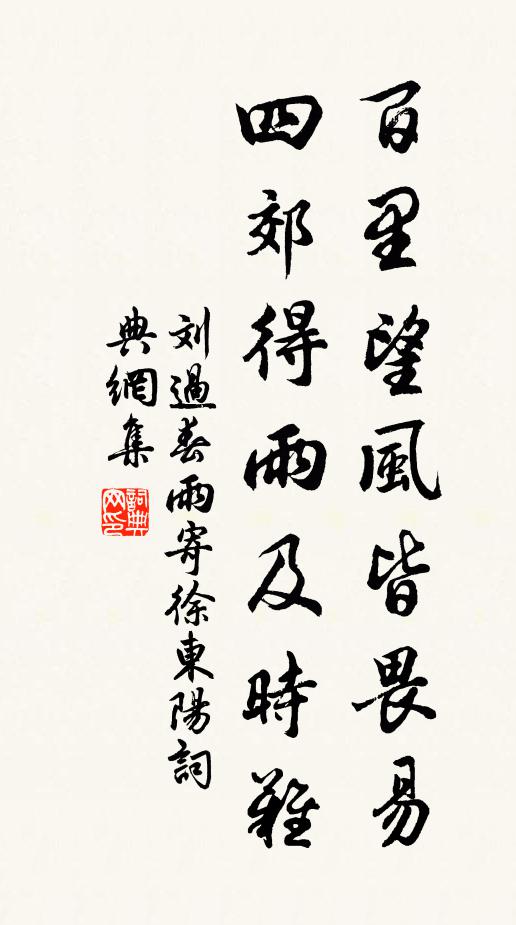 百里望風皆畏易
四郊得雨及時難
刘過春雨寄徐東陽詞
典網集
詞典
网印